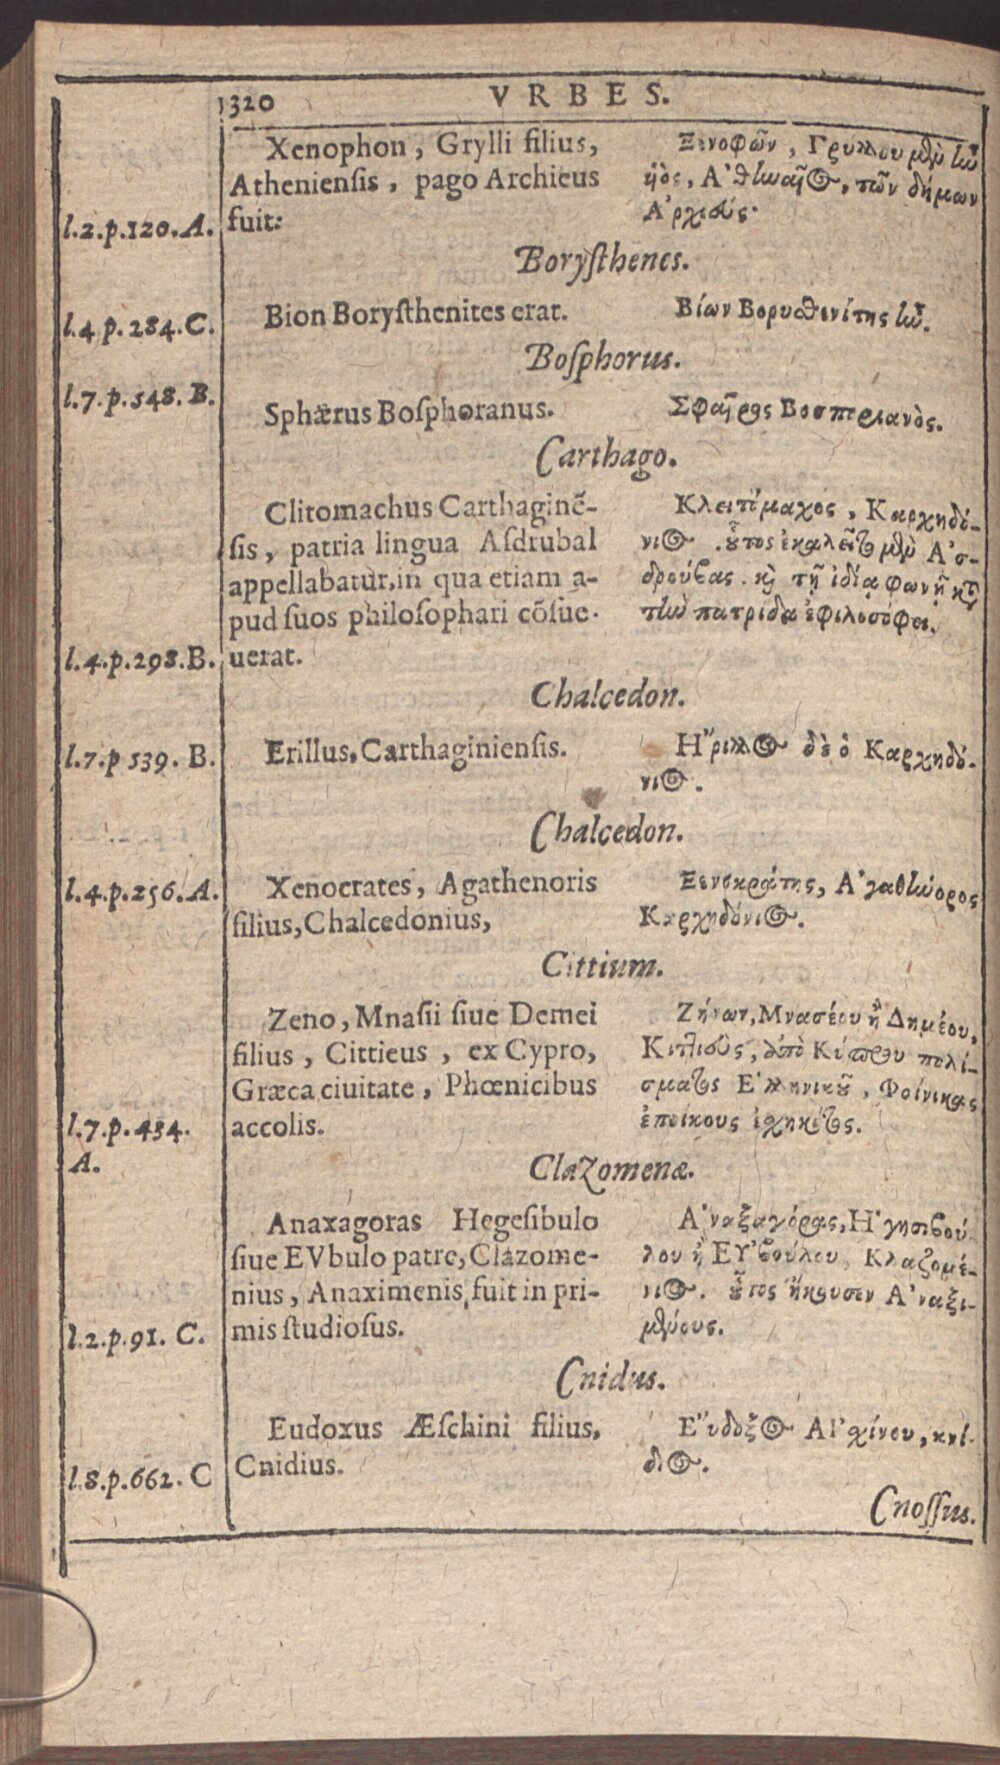 1320
VRBES.
Xenophon, Grylli filius,
Atheniensis, pago Archieus
l.2.p.120.A. fuit:
Ξενοφῶν, Γρύλλου μὲν ἦν
ὑὸς, Ἀθηναῖος, τῶν δήμων
Ἀρχιεύς·
Boryſthenes.
l.4 p.284.C. Bion Boryſthenites erat.
Βίων Βορυσθενίτης ἦν.
Boſphorus.
l.7.p.548.B. Sphærus Boſphoranus.
Σφαῖρος Βοσποριανὸς.
Carthago.
Clitomachus Carthaginẽ-
ſis, patria lingua Aſdrubal
appellabatur,in qua etiam a-
pud ſuos philoſophari cõſue-
l.4.p.298.B. uerat.
Κλειτόμαχος, Καρχηδό-
νιος. οὗτος ἐκαλεῖτο μὲν Ἀσ-
δρούβας. καὶ τῇ ἰδίᾳ φωνῇ κατὰ
τὴν πατρίδα ἐφιλοσόφει.
Chalcedon.
l.7.p 539. B. Erillus,Carthaginienſis.
Ἥριλλος δὲ ὁ Καρχηδό-
νιος.
Chalcedon.
l.4.p.256.A. Xenocrates, Agathenoris
filius,Chalcedonius,
Ξενοκράτης, Ἀγαθήνορος
Καρχηδόνιος.
Cittium.
Zeno, Mnaſii ſiue Demei
filius, Cittieus, ex Cypro,
Græca ciuitate, Phœnicibus
l.7.p.434. accolis.
A.
Ζήνων, Μνασέου ἢ Δημέου,
Κιτιεύς, ἀπὸ Κύπρου πολί-
σματος Ἑλληνικοῦ, Φοίνικας
ἐποίκους ἐσχηκότος.
ClaZomenæ.
Anaxagoras Hegeſibulo
ſiue EVbulo patre, Clazome-
nius, Anaximenis fuit in pri-
l.2.p.91. C. mis ſtudioſus.
Ἀναξαγόρας, Ἡγησιβού-
λου ἢ ΕΥ᾽βούλου, Κλαζομέ-
νιος. οὗτος ἤκουσεν Ἀναξι-
μένους.
Cnidus.
Eudoxus Æſchini filius,
l.8.p.662. C Cnidius.
Εὔδοξος Αἰσχίνου, κνί-
διος.
Cnoſſus.